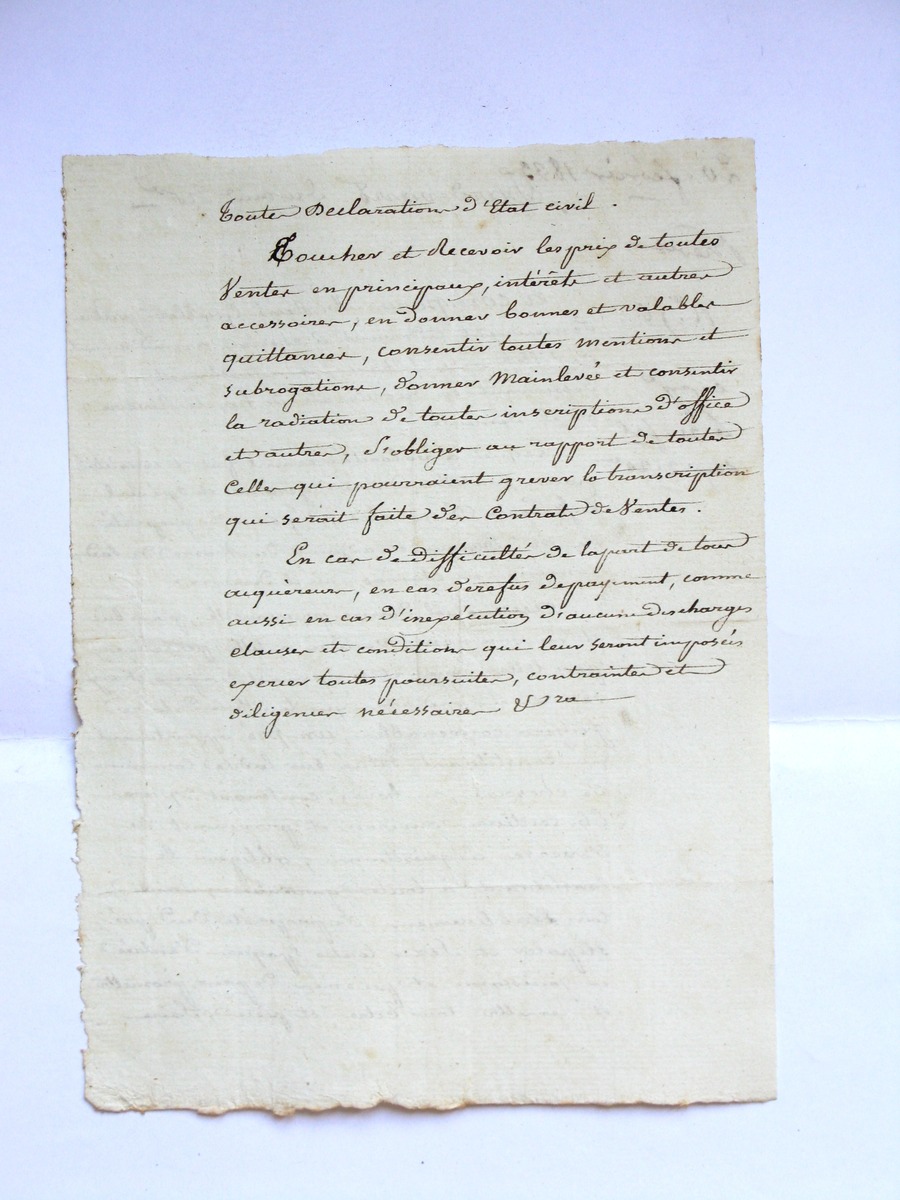 Toutes Declarations d'Etat civil.
Toucher et Recevoir les prix de toutes
Ventes en principaux, intérêts et autres
accessoires, en donner bonnes et valables
quittances, consentir toutes mentions et
subrogations, donner Mainlevée et consentir
la radiation de toutes inscriptions d'office
et autres, S'obliger au rapport de toutes
Celles qui pourraient grever la transcription
qui serait faite des Contrats de Ventes.
En cas de difficultés de la part de tous
acquéreurs, en cas de refus de payement, comme
aussi en cas d'inexécution d'aucunes des charges
clauses et conditions qui leur seront imposées
exercer toutes poursuites, contraintes et
diligences nécessaires & ra